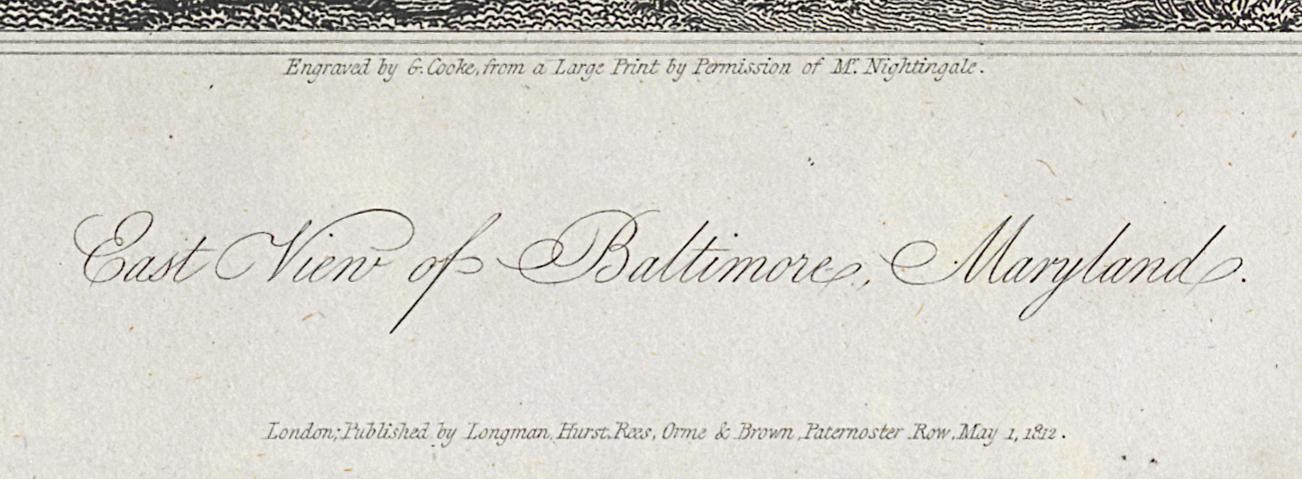 Engraved by G. Cooke, from a Large Print by Permission of Mr. Nightingale.
East View of Baltimore, Maryland.
London; Published by Longman, Hurst, Rees, Orme & Brown, Paternoster Row, May 1, 1812.